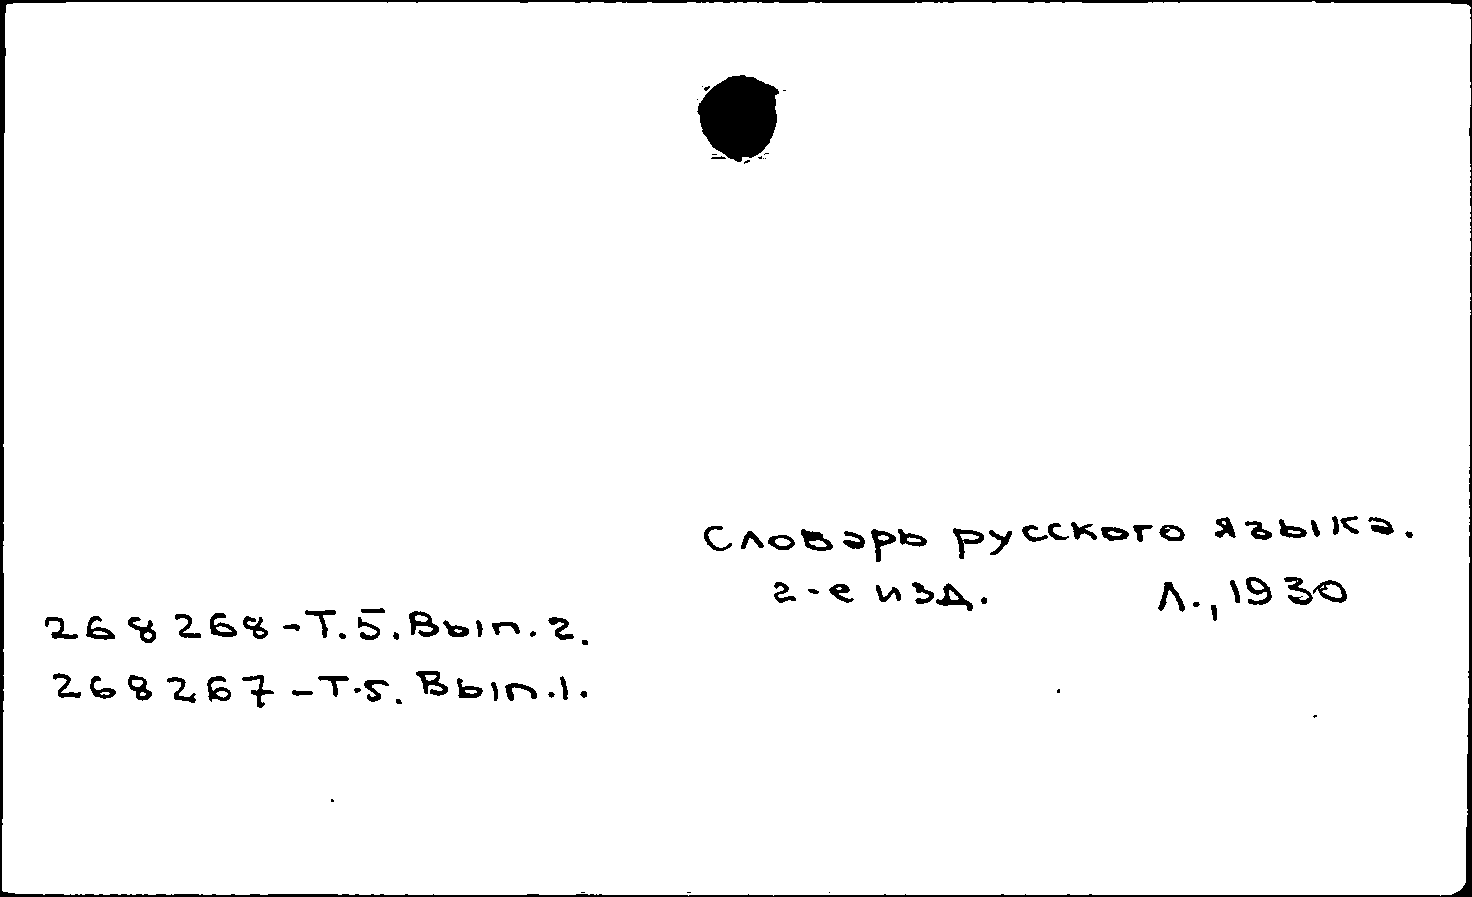 Словарь русского языка.
2-е изд. Л., 1930
268268-Т.5. Вып.2.
268267-Т.5. Вып.1.